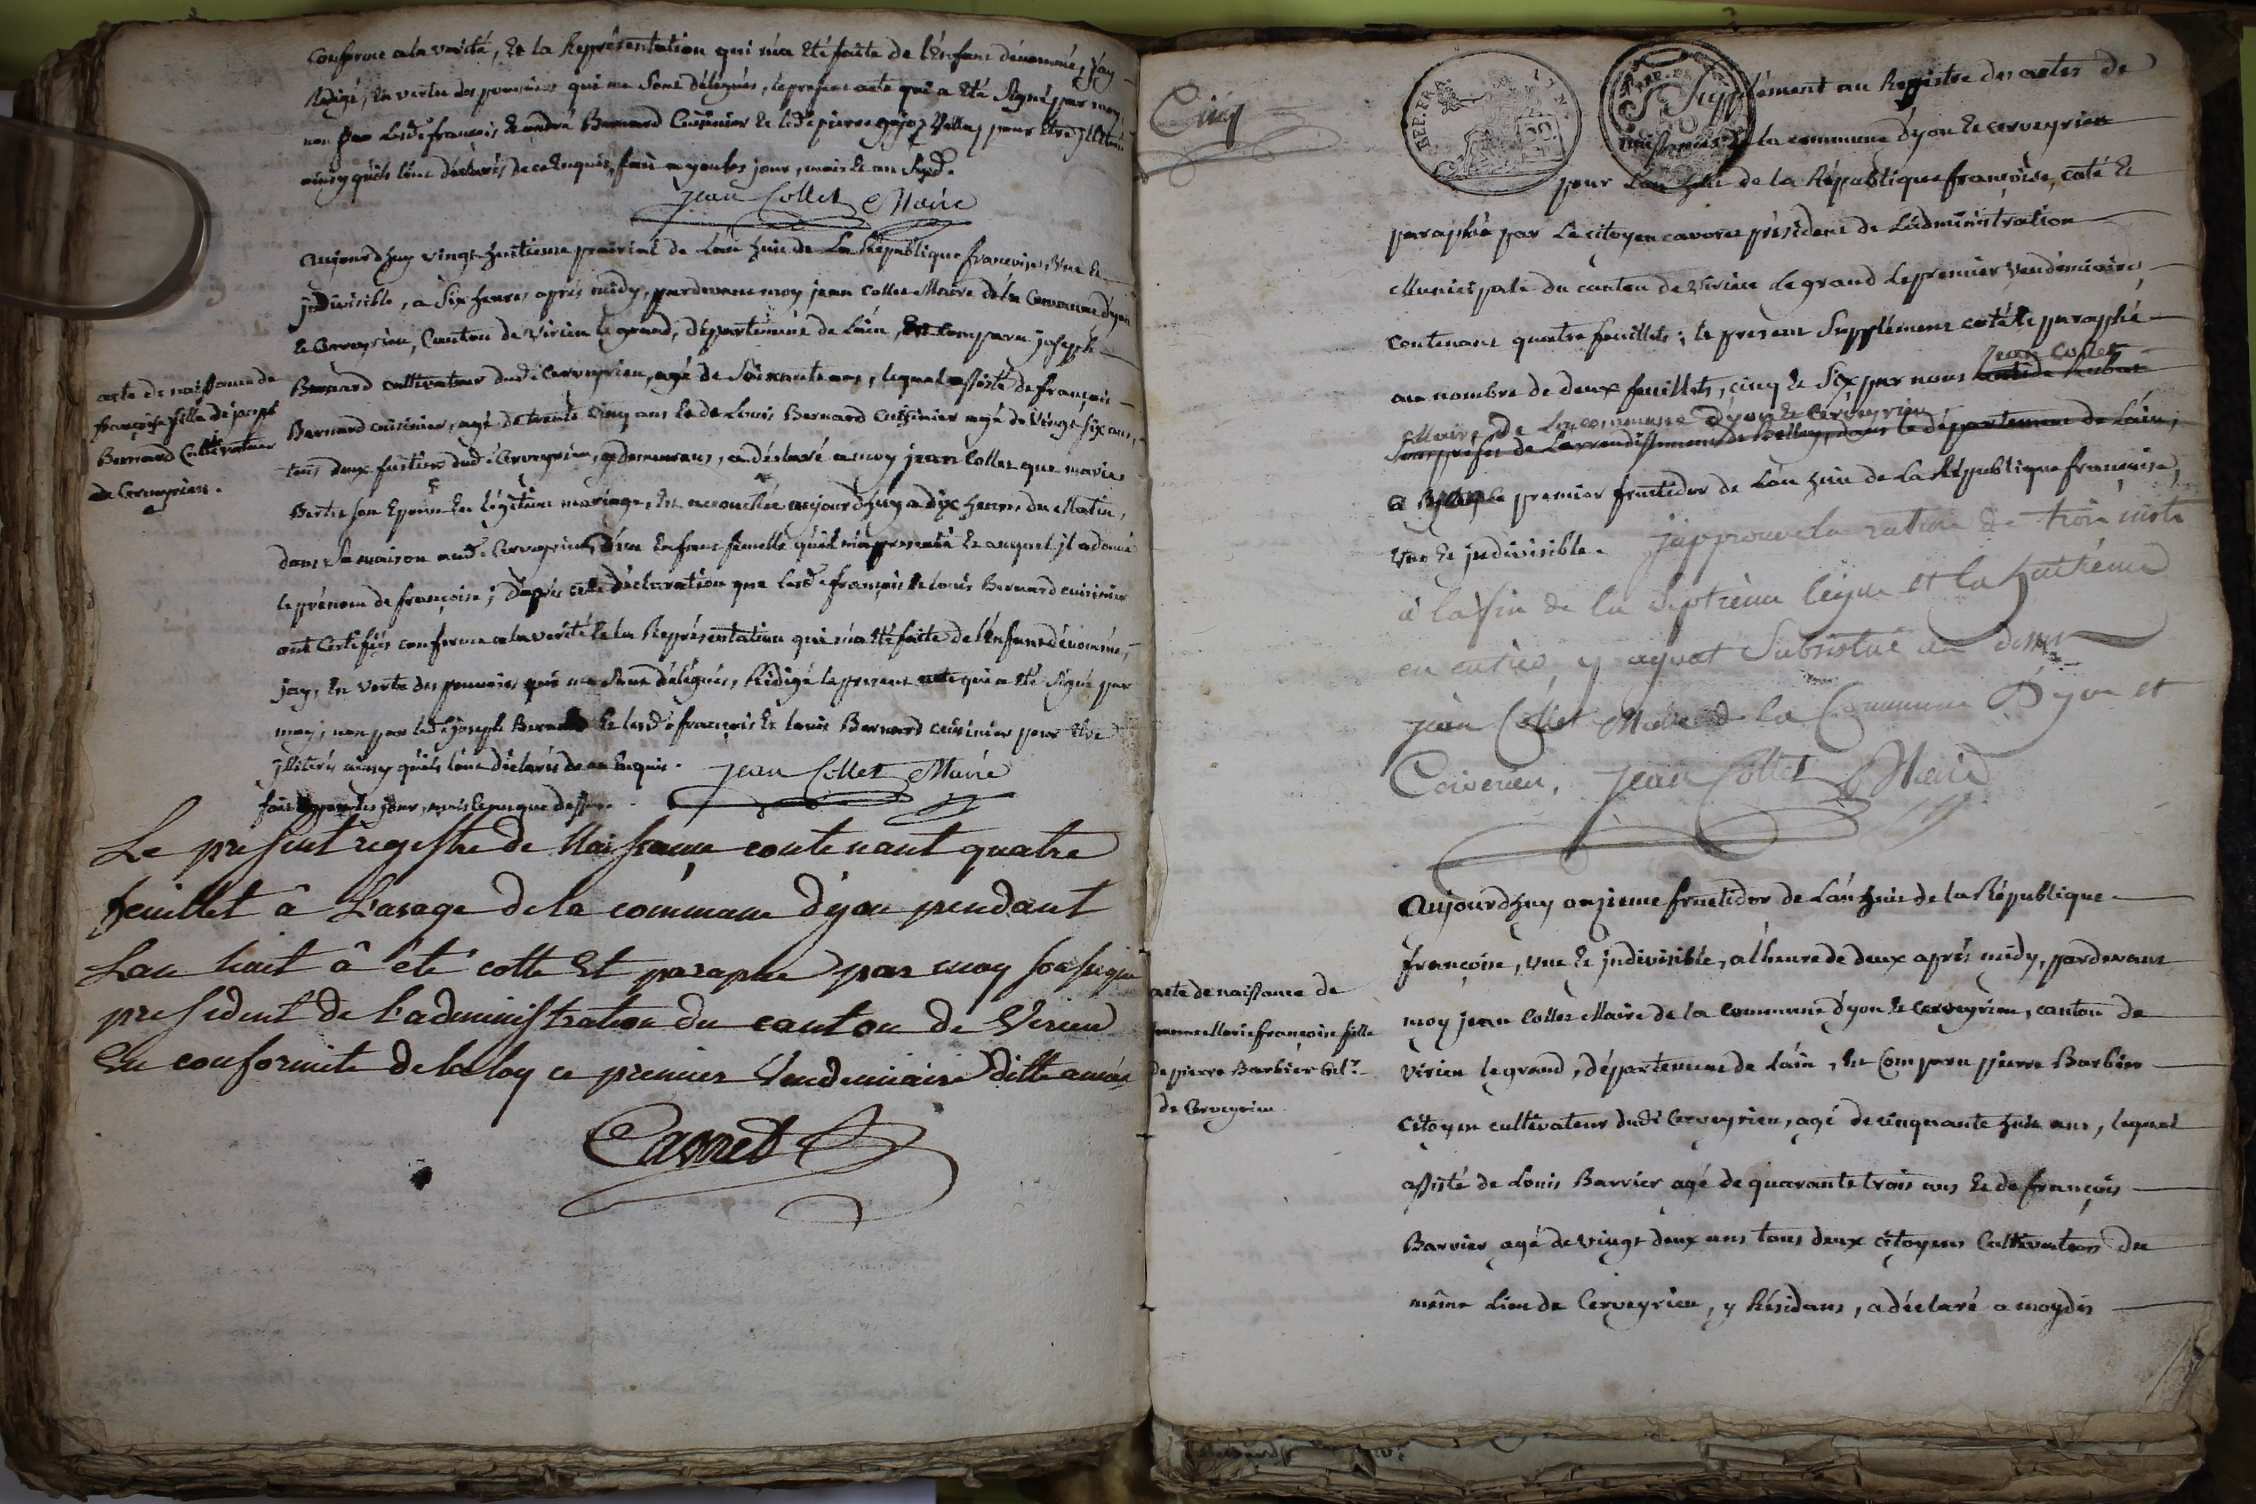 conforme a la verité, Et la Représentation qui m'a Eté faite de l'Enfant dénommé, j'ay
Rédigé, En vertu des pouvoirs qui me sont délégués, le present acte qui a Eté signé par moy
non par lesd. françois Et andré Bernard Cuisinier Et led. pierre gojoz Vollet pour Etre illiterés
ainsy qu'ils l'ont déclarés de ce Enquis, fait a yon les jour, mois Et an susd.
Jean Collet Maire
Aujourdhuy vingt huitieme prairial de L'an huit de La Republique francoise, Vne Et
jndivisible, à Six heures après midy, pardevant moy jean Collet Maire de la Commune d'yon
Et Cerveyrieu, Canton de Virieu le grand, département de Lain, Est Comparu joseph
Bernard cultivateur dud. Cerveyrieu, agé de Soixante ans, lequel assisté de françois
Bernard cuisinier, agé de trente cinq ans Et de Louis Bernard Cuisinier agé de Vingt six ans,
tous deux dud. Cerveyrieu, y demeurans, a déclaré a moy jean Collet que marie
Bertin son Epouse En légitime mariage, Est accouchée aujourdhuy a dix heures du Matin,
dans Sa maison aud. Cerveyrieu, d'un Enfant femelle qu'il m'a presenté Et auquel jl a donné
le prénom de françoise; D'après cette déclaration que lesd. françois Et louis Bernard cuisinier
ont Certifiés conforme a la verité Et la Représentation qui m'a Eté faite de l'Enfant dénommé,
j'ay, En vertu des pouvoirs qui me sont délégués, Rédigé le present acte qui a Eté signé par
moy, non par led. joseph Bernard Et lesd. françois Et louis Bernard cuisinier pour Etre
jlliterés ainsy qu'ils l'ont déclarés de ce Enquis.
fait a yon les jour, mois Et an que dessus.
Jean Collet Maire
acte de naissance de
françoise fille de joseph
Bernard Cultivateur
de Cerveyrieu.
Le present registre de Naissance contenant quatre
feuillet â L'usage de la commune d'yon pendant
L'an huit â été cotté Et paraphé par moy soussigné
president de l'administration du canton de Virieu
En conformité de la loy ce premier Vendemiaire ditte année
Cavoret
Cinq
REP. FRA.
Supplément au Registre des actes de
naissances de la commune d'yon Et Cerveyrieu
pour L'an huit de la Républiquefrançoise, coté Et
paraphé par Le citoyen cavoret président de L'administration
Municipale du canton de Virieu le grand le premier Vendémiaire,
contenant quatre feuillets; le present Supplément coté Et paraphé
au nombre de deux feuillets, cinq Et Six par nous
Jean Collet
Maire de La commune d'yon Et Cerveyrieu
Sousprefet de L'arrondissement de Belley, dans le département de Lain,
a yon le premier fructidor de L'an huit de La République françoise,
Vne Et jndivisible.
japprouve la rature de trois mots
à la fin de la Septieme ligne et la huitieme
en entier, y ayant Substitué au dessus
jean Collet Maire de la Commune D'yon et
Cerverieu, Jean Collet Maire
Aujourdhuy onzieme fructidor de L'an huit de la République
françoise, Vne Et jndivisible, a l'heure de deux après midy, pardevant
moy jean Collet Maire de la Commune d'yon Et Cerveyrieu, canton de
Virieu le grand, département de Lain, Est Comparu pierre Barbier
Citoyen cultivateur dud. Cerveyrieu, agé de cinquante huit ans, lequel
assisté de Louis Barvier agé de quarante trois ans Et de françois
Barvier agé de vingt deux ans tous deux citoyens Cultivateurs du
même Lieu de Cerveyrieu, y Résidans, a déclaré a moydit
acte de naissance de
Marie françoise fille
de pierre Barbier Cult.r
de Cerveyrieu